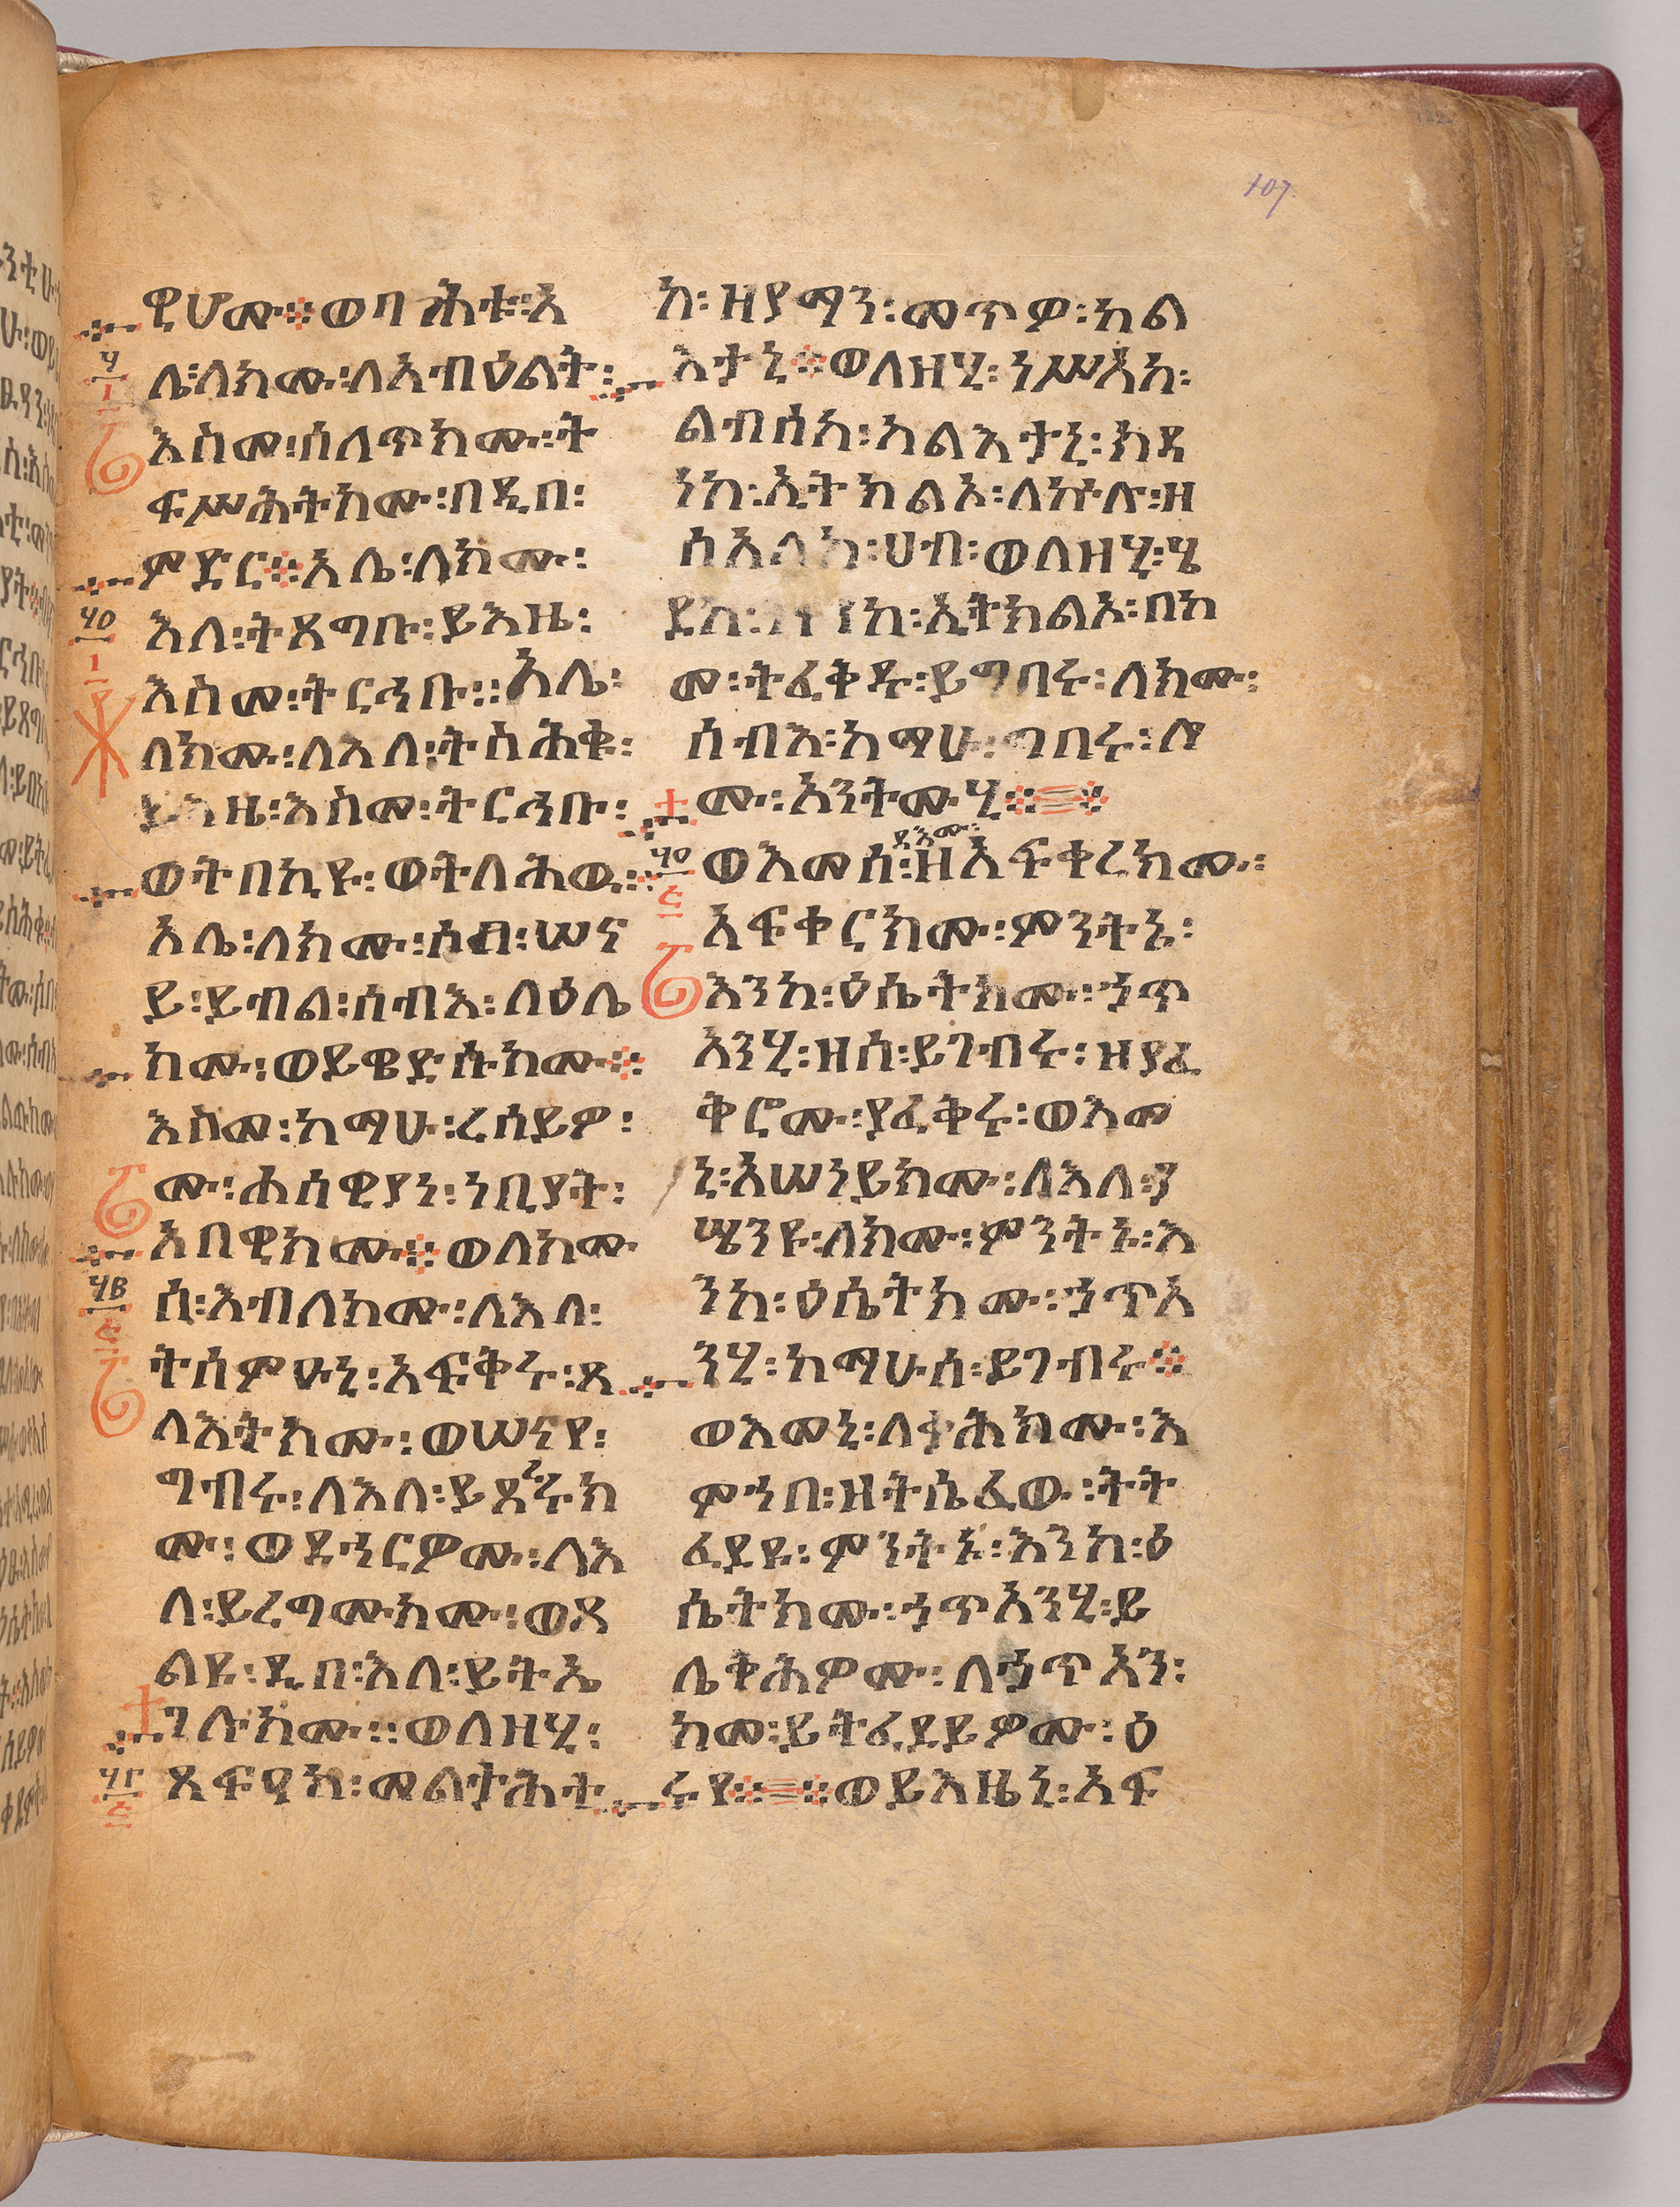 107
ዊሆሙ። ወባሕቱ፡ አ
ሌ፡ ለክሙ፡ ለአብዕልት፡
እስመ፡ ሰለጥክሙ፡ ት
ፍሥሕትክሙ፡ በዲበ፡
ምድር። አሌ፡ ለክሙ፡
እለ፡ ትጸግቡ፡ ይእዜ፡
እስመ፡ ትርኅቡ። አሌ፡
ለክሙ፡ ለእለ፡ ትስሕቁ፡
ይእዜ፡ እስመ፡ ትርኅቡ፡
ወትበክዩ፡ ወትላሕዉ።
አሌ፡ ለክሙ፡ ሶበ፡ ሠና
ይ፡ ይብል፡ ሰብእ፡ ላዕሌ
ክሙ፡ ወይዌድሱክሙ።
እስመ፡ ከማሁ፡ ረሰይዎ
ሙ፡ ሐሰዊያነ፡ ነቢያት፡
አበዊክሙ። ወለክሙ
ሰ፡ እብለክሙ፡ ለእለ፡
ትሰምዑኒ፡ አፍቅሩ፡ ጸ
ላእትክሙ፡ ወሠናየ፡
ግብሩ፡ ለእለ፡ ይጸርሩክ
ሙ፡ ወደኅርዎሙ፡ ለእ
ለ፡ ይረግሙክሙ፡ ወጸ
ልዩ፡ ዲበ፡ እለ፡ ይትኤ
ገሉክሙ። ወለዘሂ፡
ጸፍዐከ፡ መልታሕት
ከ፡ ዘየማን፡ መጥዎ፡ ካል
እታኒ። ወለዘሂ፡ ነሥአከ፡
ልብሰከ፡ ካልእታኒ፡ ክዳ
ነከ፡ ኢትክልኦ፡ ለኵሉ፡ ዘ
ሰአለከ፡ ሀብ፡ ወለዘሂ፡ ሄ
ደከ፡ ኢትክልኦ፡ በከ
መ፡ ትፈቅዱ፡ ይግበሩ፡ ለክሙ፡
ሰብእ፡ ከማሁ፡ ግበሩ፡ ሎ
ሙ፡ አንትሙሂ።
ዳእሙ፡
ወእመሰ፡ ዘአፍቀረክሙ፡
አፍቀርክሙ፡ ምንትኑ፡
እንከ፡ ዕሴትክሙ፡ ኃጥ
አንሂ፡ ዘሰ፡ ይገብሩ፡ ዘያፈ
ቅሮሙ፡ ያፈቅሩ፡ ወእመ
ኒ፡ አሠነይክሙ፡ ለእለ፡ ያ
ሤንዩ፡ ለክሙ፡ ምንትኑ፡ እ
ንከ፡ ዕሴትክሙ፡ ኃጥአ
ንሂ፡ ከማሁሰ፡ ይገብሩ።
ወእመኒ፡ ለቃሕክሙ፡ እ
ምኀበ፡ ዘትሴፈዉ፡ ትት
ፈደዩ፡ ምንትኑ፡ እንከ፡ ዕ
ሴትክሙ፡ ኃጥአንሂ፡ ይ
ሌቅሕዎሙ፡ ለኃጥአን፡
ከመ፡ ይትፈደይዎሙ፡ ዕ
ሩየ። ወይእዜኒ፡ አፍ